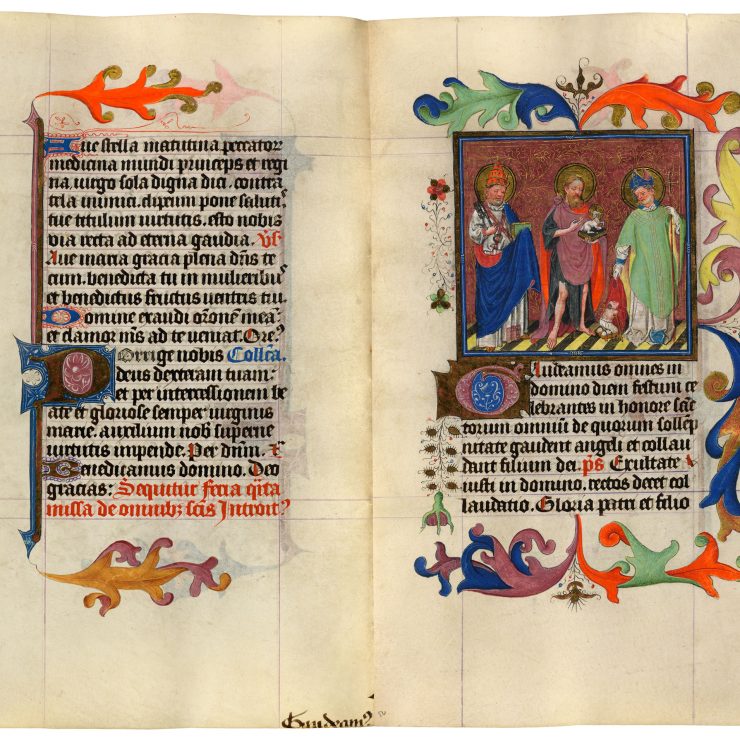 Aue stella matutina peccator
medicina mundi princeps et regi
na. uirgo sola digna dici. contra
tela inimici. clipeum pone saluti
tue titulum uirtutis. esto nobis
via recta ad eterna gaudia. Vs
Aue maria gracia plena dns te
cum. benedicta tu in mulieribus
et benedictus fructus ventris tui
Domine exaudi oronem mea
et clamor ms ad te veniat. Ore
Porrige nobis Collca.
deus dexteram tuam
et per intercessionem be
ate et gloriose semper virginis
marie. auxilium nob superne
virtutis impende. Per dnm.
Benedicamus domino. Deo
gracias: Sequitur feria qita
missa de omnibz scis Introit
Gaudeam
Gaudeamus omnes in
domino diem festum ce
lebrantes in honore sanc
torum omnium de quorum sollep
nitate gaudent angeli et collau
dant filium dei. ps Exultate
iusti in domino. rectos decet col
laudatio. Gloria patri et filio